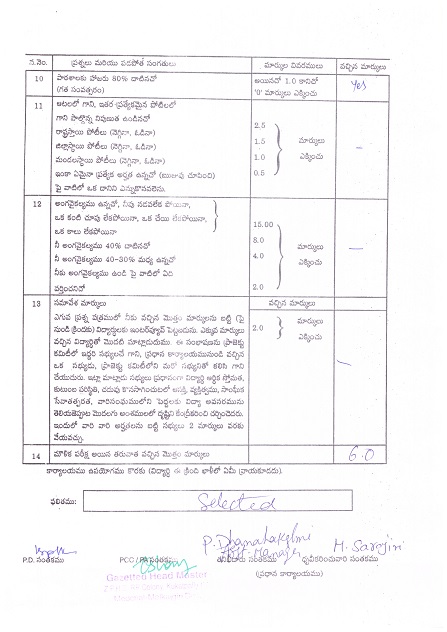 న.నెం. ప్రశ్నలు మరియు పడపోత సంగతులు మార్కుల వివరములు వచ్చిన మార్కులు
10 పాఠశాలకు హాజరు 80% దాటినచో అయినచో 1.0 కానిచో Yes
(గత సంవత్సరం) '0' మార్కులు ఎక్కించు
11 ఆటలలో గాని, ఇతర ప్రత్యేకమైన పోటీలలో
గాని పాల్గొన్న నిపుణత ఉండినచో
రాష్ట్రస్థాయి పోటీలు (నెగ్గినా, ఓడినా) 2.5
జిల్లాస్థాయి పోటీలు (నెగ్గినా, ఓడినా) 1.5 మార్కులు –
మండలస్థాయి పోటీలు (నెగ్గినా, ఓడినా) 1.0 ఎక్కించు
ఇంకా ఏమైనా ప్రత్యేక అర్హత ఉన్నచో (ఋజువు చూపించి) 0.5
పై వాటిలో ఒక దానిని ఎన్నుకొనవలెను.
12 అంగవైకల్యము ఉన్నచో, నీవు నడవలేక పోయినా,
ఒక కంటి చూపు లేకపోయినా, ఒక చేయి లేకపోయినా,
ఒక కాలు లేకపోయినా 15.00
నీ అంగవైకల్యము 40% దాటినచో 8.0 మార్కులు –
నీ అంగవైకల్యము 40-30% మధ్య ఉన్నచో 4.0 ఎక్కించు
నీకు అంగవైకల్యము ఉండి పై వాటిలో ఏది
వర్తించనిచో 2.0
13 సమావేశ మార్కులు వచ్చిన మార్కులు
ఎగువ ప్రశ్న పత్రములో నీకు వచ్చిన మొత్తం మార్కులను బట్టి (పై
నుండి క్రిందకు) విద్యార్థులకు ఇంటర్వ్యూవ్ పెట్టబడును. ఎక్కువ మార్కులు 2.0 మార్కులు
వచ్చిన విద్యార్థితో మొదటి మాట్లాడుదుము. ఈ సంభాషణను ప్రాజెక్టు ఎక్కించు
కమిటీలో ఇద్దరి సభ్యులచే గాని, ప్రధాన కార్యాలయమునుండి వచ్చిన
ఒక సభ్యుడు, ప్రాజెక్టు కమిటీలోని మరో సభ్యునితో కలిసి గాని
చేయుదురు. ఇట్లా మాట్లాడు సభ్యులు ప్రధానంగా విద్యార్థి ఆర్థిక స్తోమత,
కుటుంబ పరిస్థితి, చదువు కొనసాగించుటలో ఆసక్తి, వ్యక్తిత్వము, సాంఘిక
సేవాతత్పరత, వారిసంఘములోని పెద్దలకు విద్యా అవసరమును
తెలియజెప్పుట మొదలగు అంశములలో దృష్టిని కేంద్రీకరించి చర్చించెదరు.
ఇందులో వారి వారి అర్హతలను బట్టి సభ్యులు 2 మార్కులు వరకు
వేయవచ్చు.
14 మౌళిక పరీక్ష అయిన తరువాత వచ్చిన మొత్తం మార్కులు 6.0
కార్యాలయము ఉపయోగము కొరకు (విద్యార్థి ఈ క్రింది ఖాళీలో ఏమీ వ్రాయకూడదు).
ఫలితము: Selected
P. Dhanalakshmi
Manager M. Sarojini
P.D. సంతకము PCC / PA సంతకము తనిఖీదారు సంతకము ధృవీకరించువారి సంతకము
Gazetted Head Master (ప్రధాన కార్యాలయము)